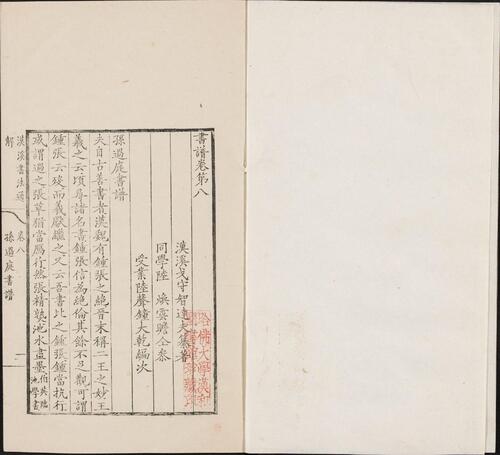 書譜卷第八
漢溪戈守智達夫纂著
同學陸　煥雲瞻仝參
受業陸聲鐘大乾編次
孫過庭書譜
夫自古善書者漢魏有鍾張之絶晉末稱二王之妙王
羲之云頃尋諸名書鍾張信爲絶倫其餘不足觀可謂
鍾張云歿而羲獻繼之又云吾書比之鍾張鍾當抗行
或謂過之張草猶當鴈行然張精熟池水盡墨伯英臨池學書
漢溪書法通解　卷八　孫過庭書譜　一
哈佛大學漢和
圖書館珍藏印